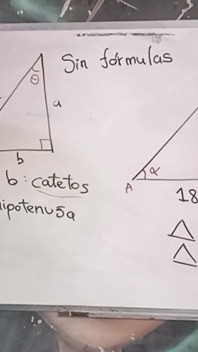 Sin fórmulas
θ
a
b
b: catetos
ipotenu5a
A
α
18